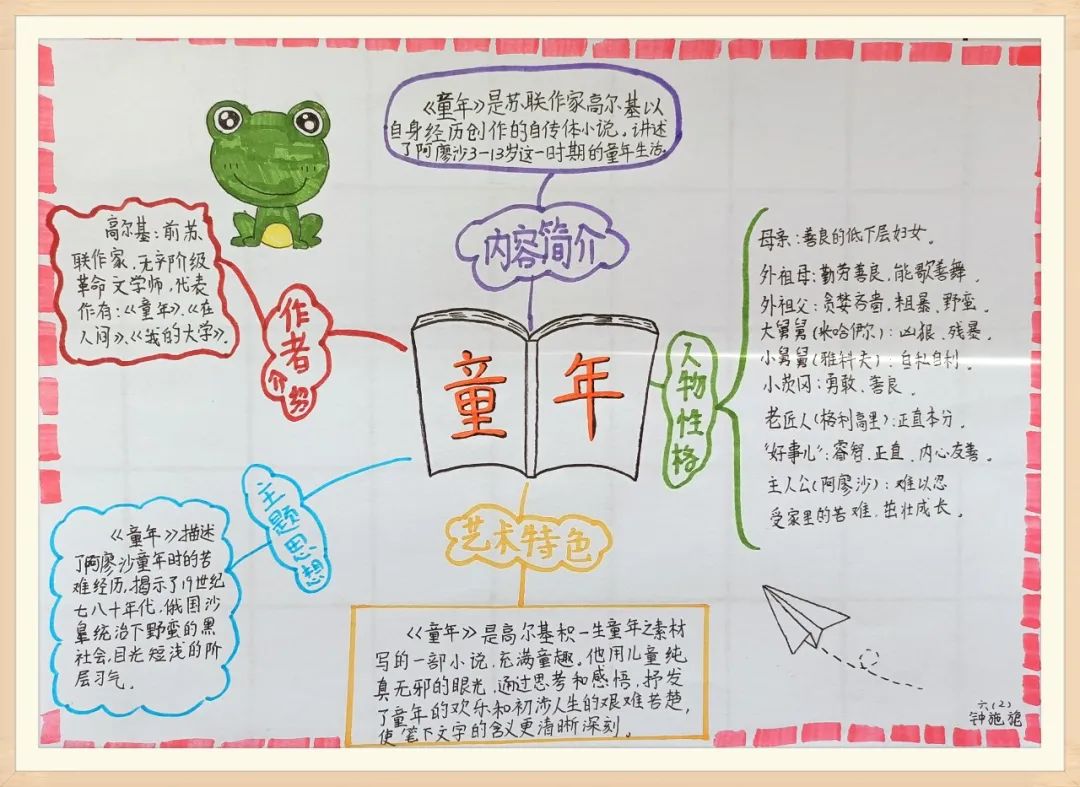 《童年》是苏联作家高尔基以
自身经历创作的自传体小说。讲述
了阿廖沙3—13岁这一时期的童年生活。
内容简介
高尔基:前苏
联作家,无产阶级
革命文学师,代表
作有:《童年》、《在
人间》、《我的大学》。
作者
介绍
童年
人物性格
母亲:善良的低下层妇女。
外祖母:勤劳善良,能歌善舞。
外祖父:贪婪吝啬,粗暴、野蛮
大舅舅(米哈伊尔):凶狠、残暴。
小舅舅(雅科夫):自私自利。
小茨冈:勇敢、善良
老匠人(格利高里):正直本分。
"好事儿":睿智、正直、内心友善。
主人公(阿廖沙):难以忍
受家里的苦难,茁壮成长。
主题思想
《童年》描述
了阿廖沙童年时的苦
难经历,揭示了19世纪
七八十年代,俄国沙
皇统治下野蛮的黑
社会,目光短浅的阶
层习气。
艺术特色
《童年》是高尔基积一生童年之素材
写的一部小说,充满童趣。他用儿童纯
真无邪的眼光,通过思考和感悟,抒发
了童年的欢乐和初涉人生的艰难苦楚,
使笔下文字的含义更清晰深刻。
六(2)
钟施